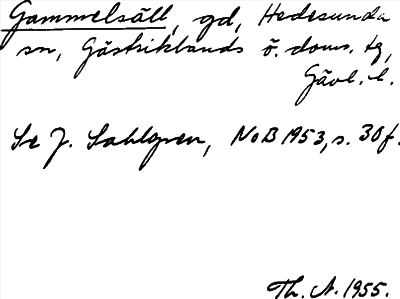 Gammelsäll, gd, Hedesunda
sn, Gästriklands ö. doms. tg,
Gävl. l.
Se J. Sahlgren, NoB 1953, s. 30f.
Th. A. 1955.